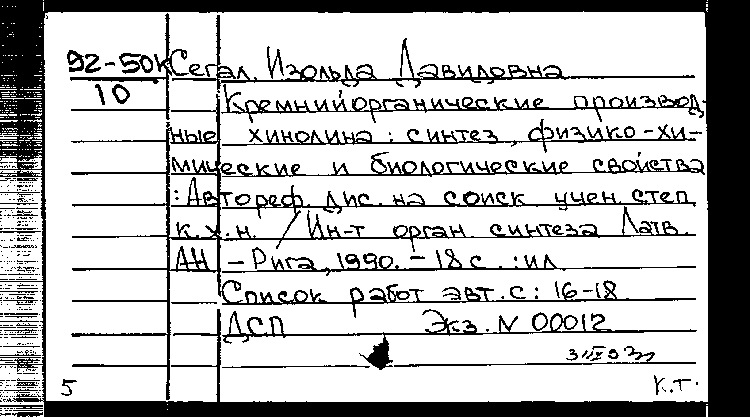 92-50К Сегал, Изольда Давидовна
10 Кремнийорганические производ-
ные хинолина: синтез, физико-хи-
мические и биологические свойства
: Автореф. дис. на соиск. учен. степ.
к.х.н. / Ин-т орган. синтеза Латв.
АН – Рига, 1990. – 18 с. : ил.
Список работ авт. с: 16-18
ДСП Экз. N 00012
5 К.Т.